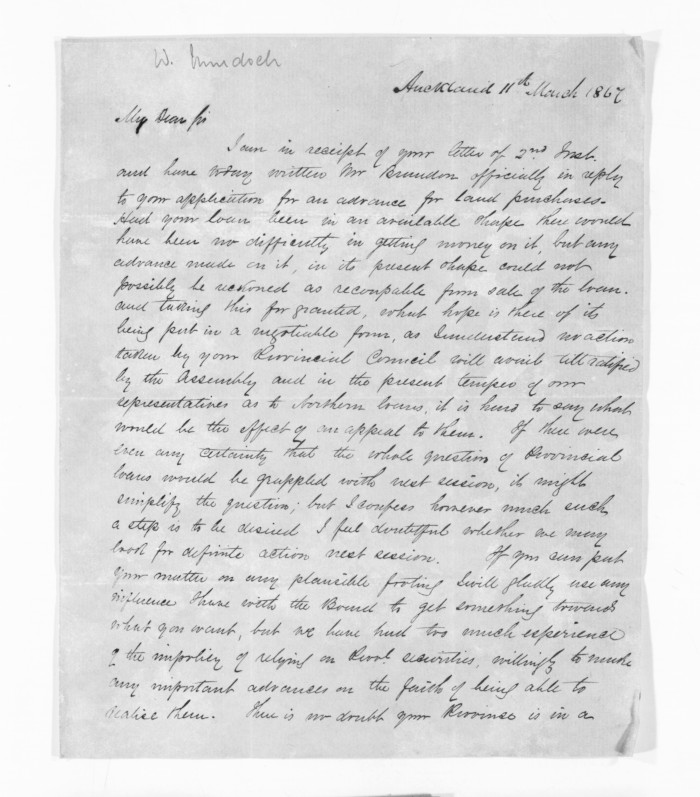 W. Murdoch
Auckland 11th March 1867
My Dear Sir
I am in receipt of your letter of 2nd Inst.
and have written Mr Brandon officially in reply
to your application for an advance for land purchases.
Had your loan been in an available shape there would
have been no difficulty in getting money on it, but any
advance made on it, in its present shape could not
possibly be reckoned as recoupable from sale of the loan.
and taking this for granted, what hope is there of its
being put in a negotiable form, as I understand no action
taken by your Provincial Council will avail till ratified
by the Assembly and in the present temper of our
representatives as to Northern loans, it is hard to say what
would be the effect of an appeal to them. If there were
even any certainty that the whole question of Provincial
loans would be grappled with next session, it might
simplify the question; but I confess however much such
a step is to be desired I feel doubtful whether we may
look for definite action next session. If you can put
your matter on any plausible footing I will gladly use any
influence I have with the Board to get something towards
what you want, but we have had too much experience
of the impolicy of relying on Provl. securities, willingly to make
any important advances on the faith of being able to
realise them. There is no doubt your Province is in a